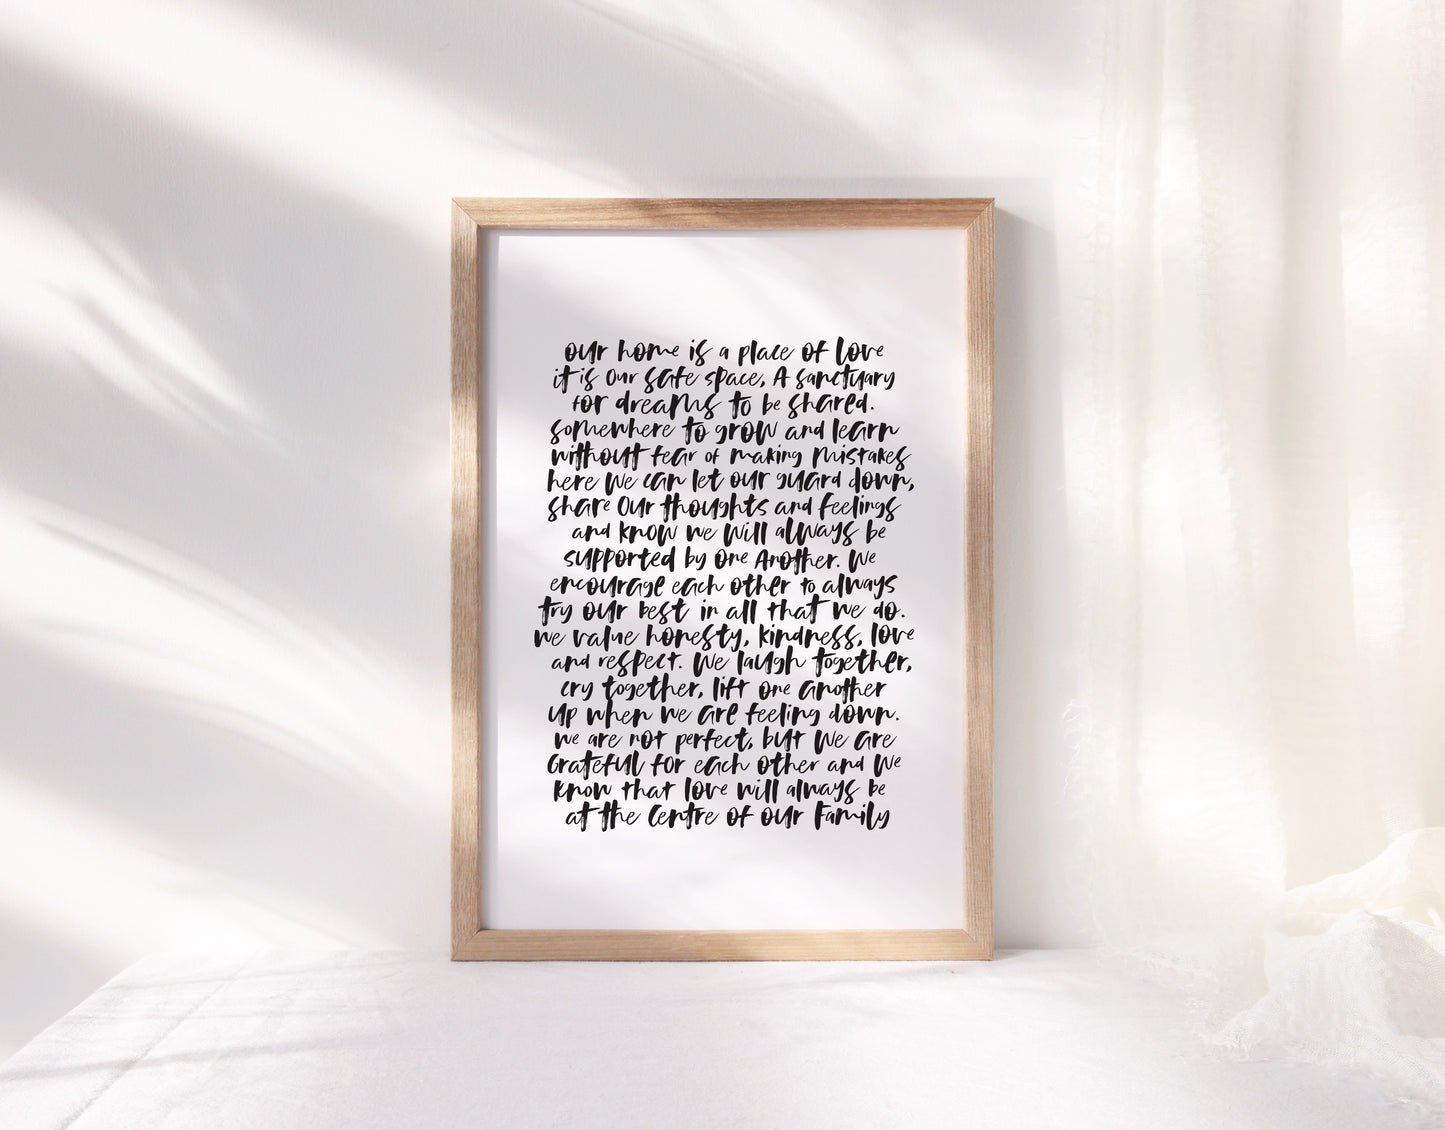 our home is a place of love
it is our safe space, A sanctuary
for dreams to be shared.
somewhere to grow and learn
without fear of making mistakes
here we can let our guard down,
share our thoughts and feelings
and know we will always be
supported by one Another. We
encourage each other to always
try our best in all that we do.
we value honesty, kindness, love
and respect. We laugh together,
cry together, lift one another
up when we are feeling down.
we are not perfect, but We are
Grateful for each other and We
know that love will always be
at the Centre of our Family